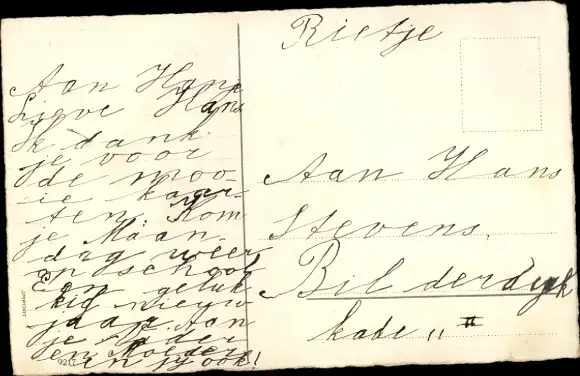 Aan Hans
Lieve Hans
Ik dank
je voor
de moo-
ie kaar-
ten. Kom
je Maan
dag weer
op school
Een geluk
kig nieuw
jaar. Aan
je Vader
en Moeder
en jy ook!
9217
Rietje
Aan Hans
Stevens.
Bilderdyk
kade 11 II